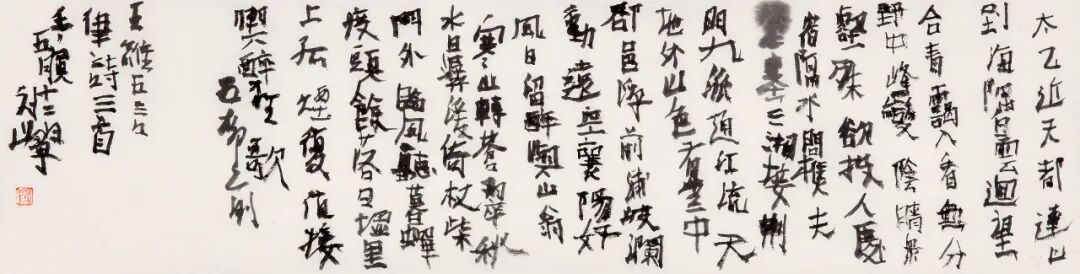 太乙近天都連山
到海隅白雲迴望
合青靄入看無分
野中峰變陰晴衆
壑殊欲投人處
宿隔水問樵夫
楚塞三湘接荆
門九派通江流天
地外山色有無中
郡邑浮前浦波瀾
動遠空襄陽好
風日留醉與山翁
寒山轉蒼翠秋
水日潺湲倚杖柴
門外臨風聽暮蟬
渡頭餘落日墟里
上孤煙復值接
輿醉狂歌
五柳前
王維五言
律詩三首